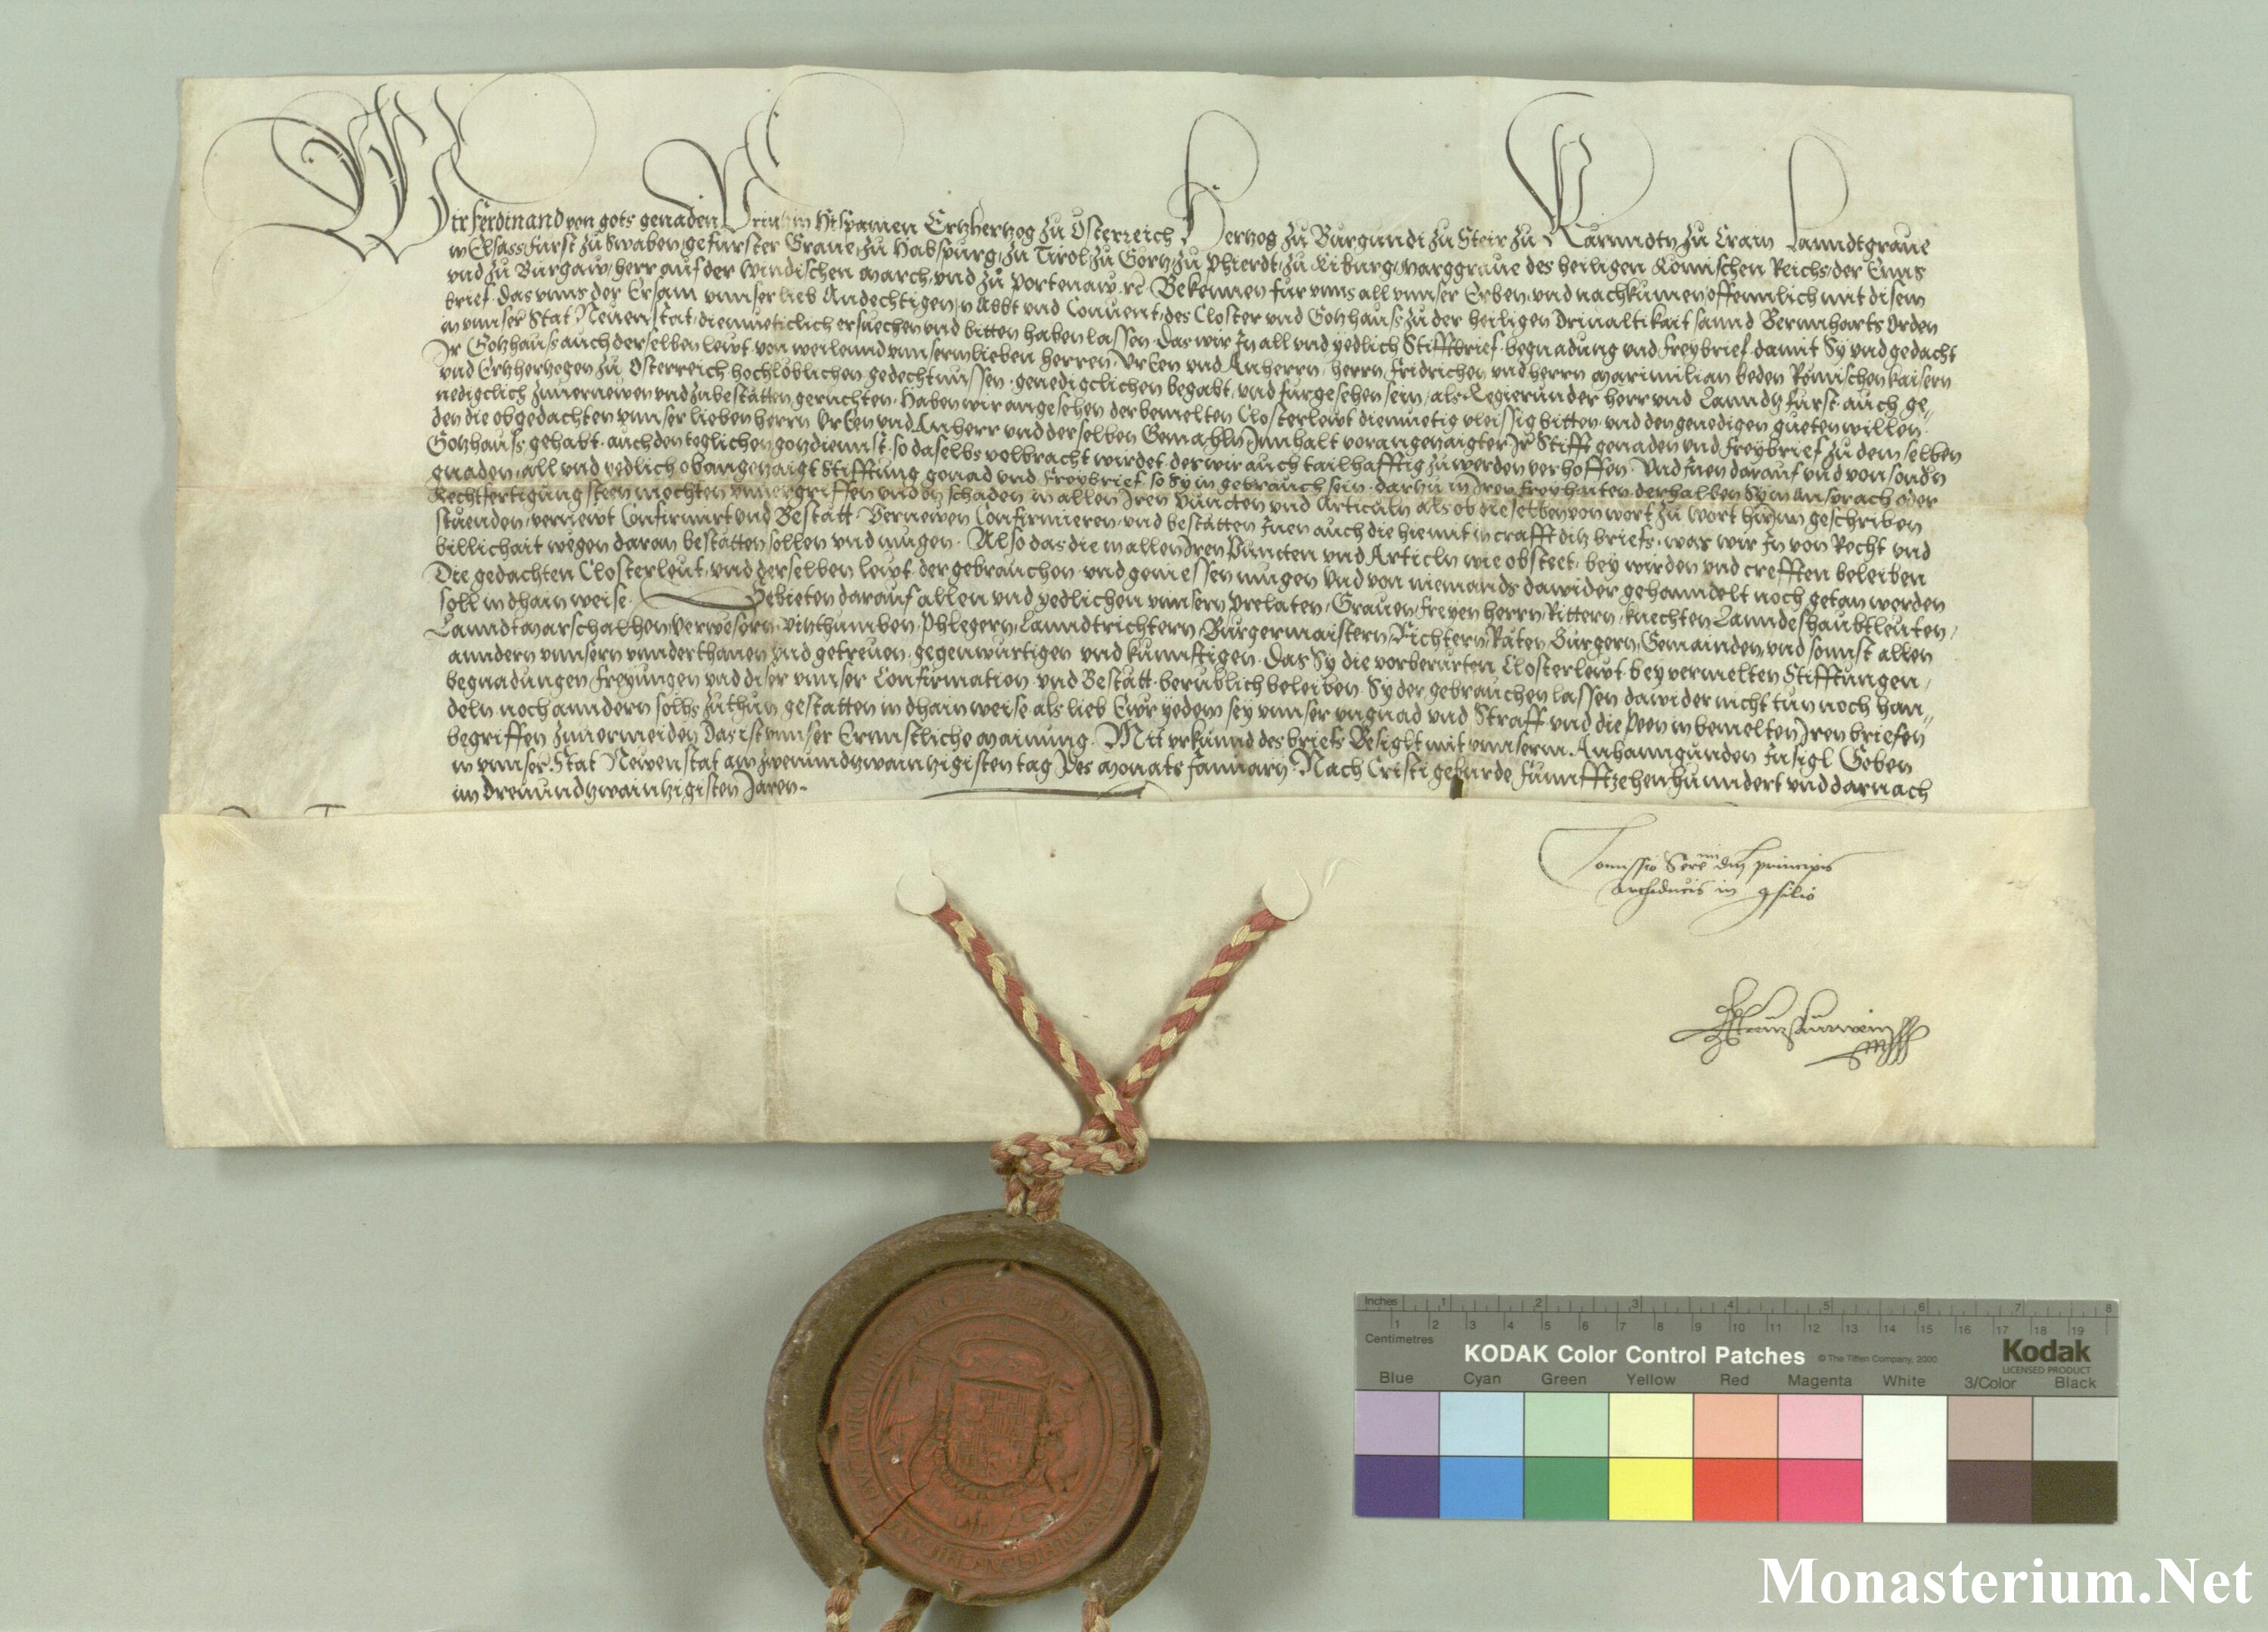 Wir Ferdinand von gots genaden Printz in Hispanien Ertzhertzog zu Osterreich Hertzog zu Burgundi zu Steir zu Kärnndtn zu Crain Lanndtgraue
in Elsass, Fürst zu Swaben, gefürster Graue, zu Habspurg, zu Tirol zu Görtz, zu Phierdt, zu Kiburg, Marggraue des heiligen Römischen Reichs, der Enns
vnd zu Burgaw, herr auf der Windischen March, vnd zu Portenaw. rc Bekennen für vnns all vnnser Erben vnd nachkumen, offennlich mit disem
brief. Das vnns der Ersam vnnser lieb Andechtigen, N Abbt vnd Conuent, des Closter vnd Gotzhauss zu der heiligen Driualtikait sannd Bernnharts Orden
in vnnser Stat Neuenstat, diemueticlich ersuechen vnd bitten haben lassen. Das wir Jn all vnd yedlich Stifftbrief. begnadung vnd Freybrief. damit Sy vnd gedacht
Jr Gotzhaus auch derselben lewt. von weilennd vnnserm lieben herren, vrEen vnd Anherrn, herrn Fridrichen vnd herrn Maximilian beden Römischen kaisern
vnd Ertzhertzogen zu Osterreich hochlöblichen gedechtnussen. genedigclichen begabt, vnd fürgesehen sein, als Regierunder herr vnd Lanndsfürst. auch ge„
nedigclich zuuernewen vnd zubestätten geruchten. Haben wir angesehen der bemelten Closterlewt diemuetig vleissig bitten. vnd den genedigen gueten willen.
den die obgedachten vnnser lieben herrn VrEen vnd Anherr vnd derselben Gemahln Jnnhalt vorangezaigter Jr Stifft genaden vnd Freybrief zu dem selben
Gotzhauss gehabt. auch den teglichen gotzdiennst. so daselbs volbracht wirdet. des wir auch tailhafftig zu werden verhoffen. Vnd Jnen darauf vnd von sondn
gnaden. all vnd yedlich obangezaigt Stifftung gonad vnd Freybrief. so Sy in gebrauch sein. dartzu in Jren Freyhaiten. derhalben Sy in Ansprach oder
Rechtfertigung steen möchten vnuergriffen vnd on schaden in allen Jren Puncten vnd Articuln als ob dieselben von wort zu wort hierjnn geschriben
stuenden, vernewt Confirmirt vnd Bestätt. Vernewen Confirmieren vnd bestätten Jnen auch die hiemit in crafft ditz briefs. was wir Jn von Recht vnd
billichait wegen daran bestätten sollen vnd mügen. Also das die in allen Jren Puncten vnd Articln wie obsteet, bey wirden vnd crefften beleiben
Die gedachten Closterleut. vnd derselben lewt. der gebrauchen vnd geniessen mügen Vnd von niemands dawider gehanndelt noch getan werden
soll in dhain weise. Gebieten darauf allen vnd yedlichen vnnsern Prelaten, Grauen, Freyen herrn Rittern, knechten Lanndeshaubtleuten,
Lanndtmarschalhen, Verwesern. Vitzthumben, Phlegern, Lanndtrichtern, Burgermaistern, Richtern, Räten, Burgern, Gemainden, vnd sonnst allen
anndern vnnsern vnnderthanen vnd getreuen. gegenwurtigen vnd künnftigen. Das Sy die vorberürten Closterlewt. bey vermelten Stifftungen,
begnadungen Freyungen vnd diser vnnser Confirmation. vnd Bestätt. berublich beleiben. Sy der gebrauchen lassen dawider nicht tun noch han„
deln noch anndern solhs zuthun gestatten in dhain weise als lieb Ewr yedem sey vnnser vngnad vnd Straff. vnd die Peen in bemelten Jren briefen
begriffen zuuermeiden Das ist vnnser Ernnstliche mainung. Mit vrkunnd des briefs Besiglt mit vnnserm Anhanngunden Jnsigl Geben
in vnnser Stat Newenstat am zwenundtzwaintzigisten tag des Monats Januarij. Nach Cristi geburde Fünnfftzehenhunndert vnd darnach
im dreiundtzwaintzigisten Jaren.
Comissio Sereᵐⁱ dnj principis
archiducis in 9silio
KODAK Color Control Patches
© The Tiffen Company, 2000
Kodak
LICENSED PRODUCT
Inches 1 2 3 4 5 6 7 8
Centimetres 1 2 3 4 5 6 7 8 9 10 11 12 13 14 15 16 17 18 19
Blue Cyan Green Yellow Red Magenta White 3/Color Black
Monasterium.Net